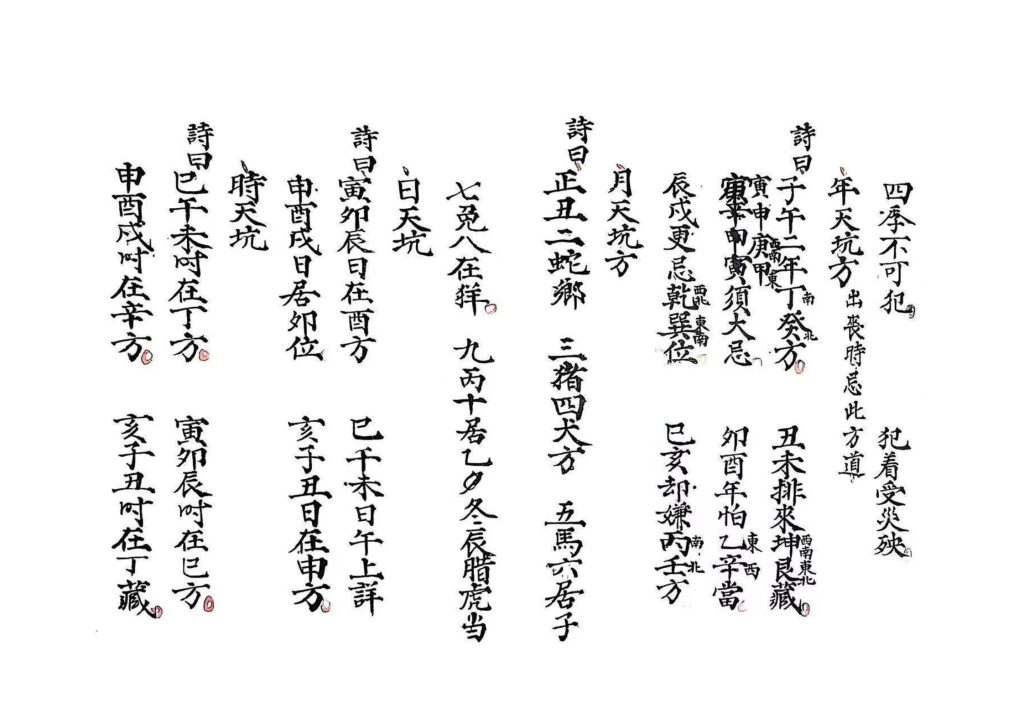 四不可犯 犯着受災殃
年天坑方 出喪時忌此方道
詩曰 子午二年丁南癸北方 丑未排來坤西南艮東北藏
寅申庚西南甲東
須大忌 卯酉年怕乙東辛西當
辰戌更忌乾西北巽東南位 巳亥却嫌丙南壬北方
月天坑方
詩曰 正丑二蛇鄉 三猪四犬方 五馬六居子
七兔八在 九丙十居乙 冬辰腊虎当
日天坑
詩曰 寅卯辰日在酉方 巳午未日午上詳
申酉戌日居卯位 亥子丑日在申方
時天坑
詩曰 巳午未时在丁方 寅卯辰时在巳方
申酉戌时在辛方 亥子丑时在丁藏